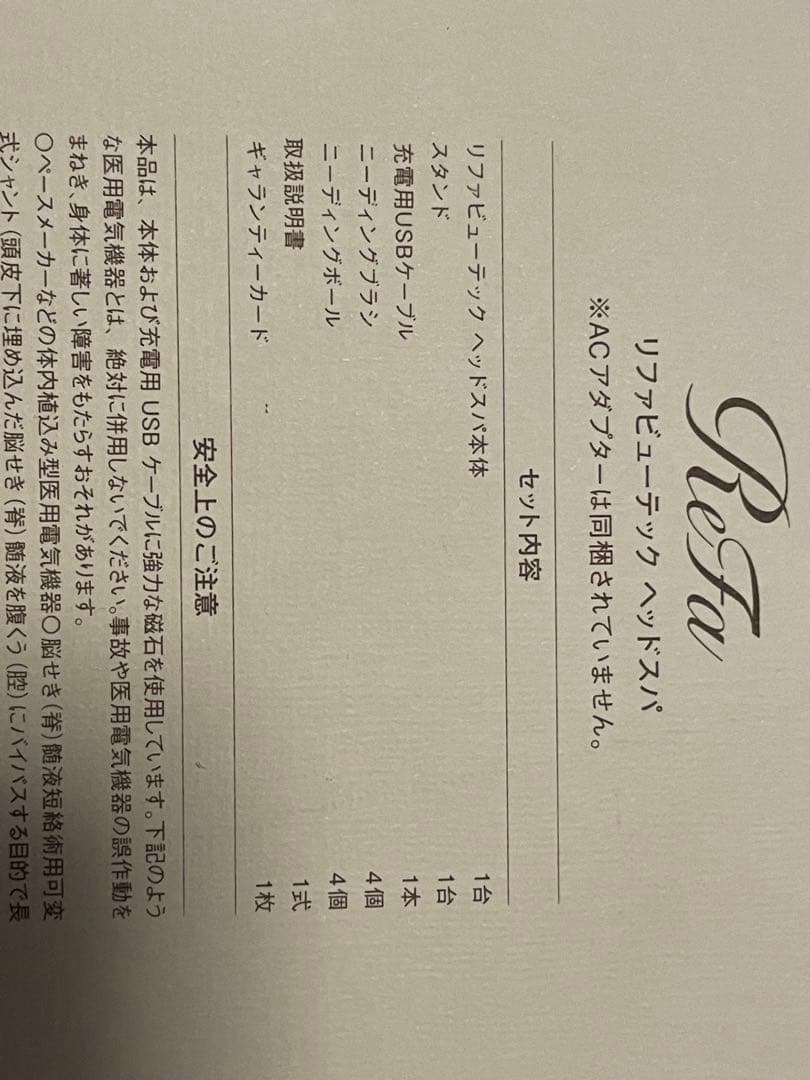 ReFa
リファビューテック ヘッドスパ
※ACアダプターは同梱されていません。
セット内容
リファビューテック ヘッドスパ本体 1台
スタンド 1台
充電用USBケーブル 1本
ニーディングブラシ 4個
ニーディングボール 4個
取扱説明書 1式
ギャランティーカード 1枚
安全上のご注意
本品は、本体および充電用 USB ケーブルに強力な磁石を使用しています。下記のよう
な医用電気機器とは、絶対に併用しないでください。事故や医用電気機器の誤作動を
まねき、身体に著しい障害をもたらすおそれがあります。
〇ペースメーカーなどの体内植込み型医用電気機器〇脳せき(脊)髄液短絡術用可変
式シャント(頭皮下に埋め込んだ脳せき(脊)髄液を腹くう(腔)にバイパスする目的で長